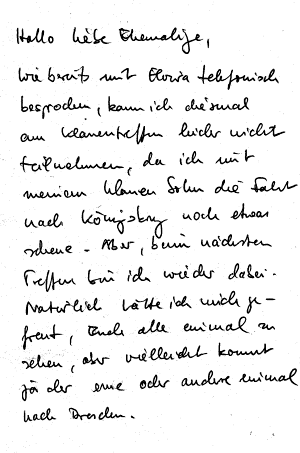 Hallo liebe Ehemalige,
wie bereits mit Elvira telefonisch
besprochen, kann ich diesmal
am Klassentreffen leider nicht
teilnehmen, da ich mit
meinem kleinen Sohn die Fahrt
nach Königsberg noch etwas
scheue. Aber, beim nächsten
Treffen bin ich wieder dabei.
Natürlich hätte ich mich ge-
freut, Euch alle einmal zu
sehen, aber vielleicht kommt
ja der eine oder andere einmal
nach Dresden.